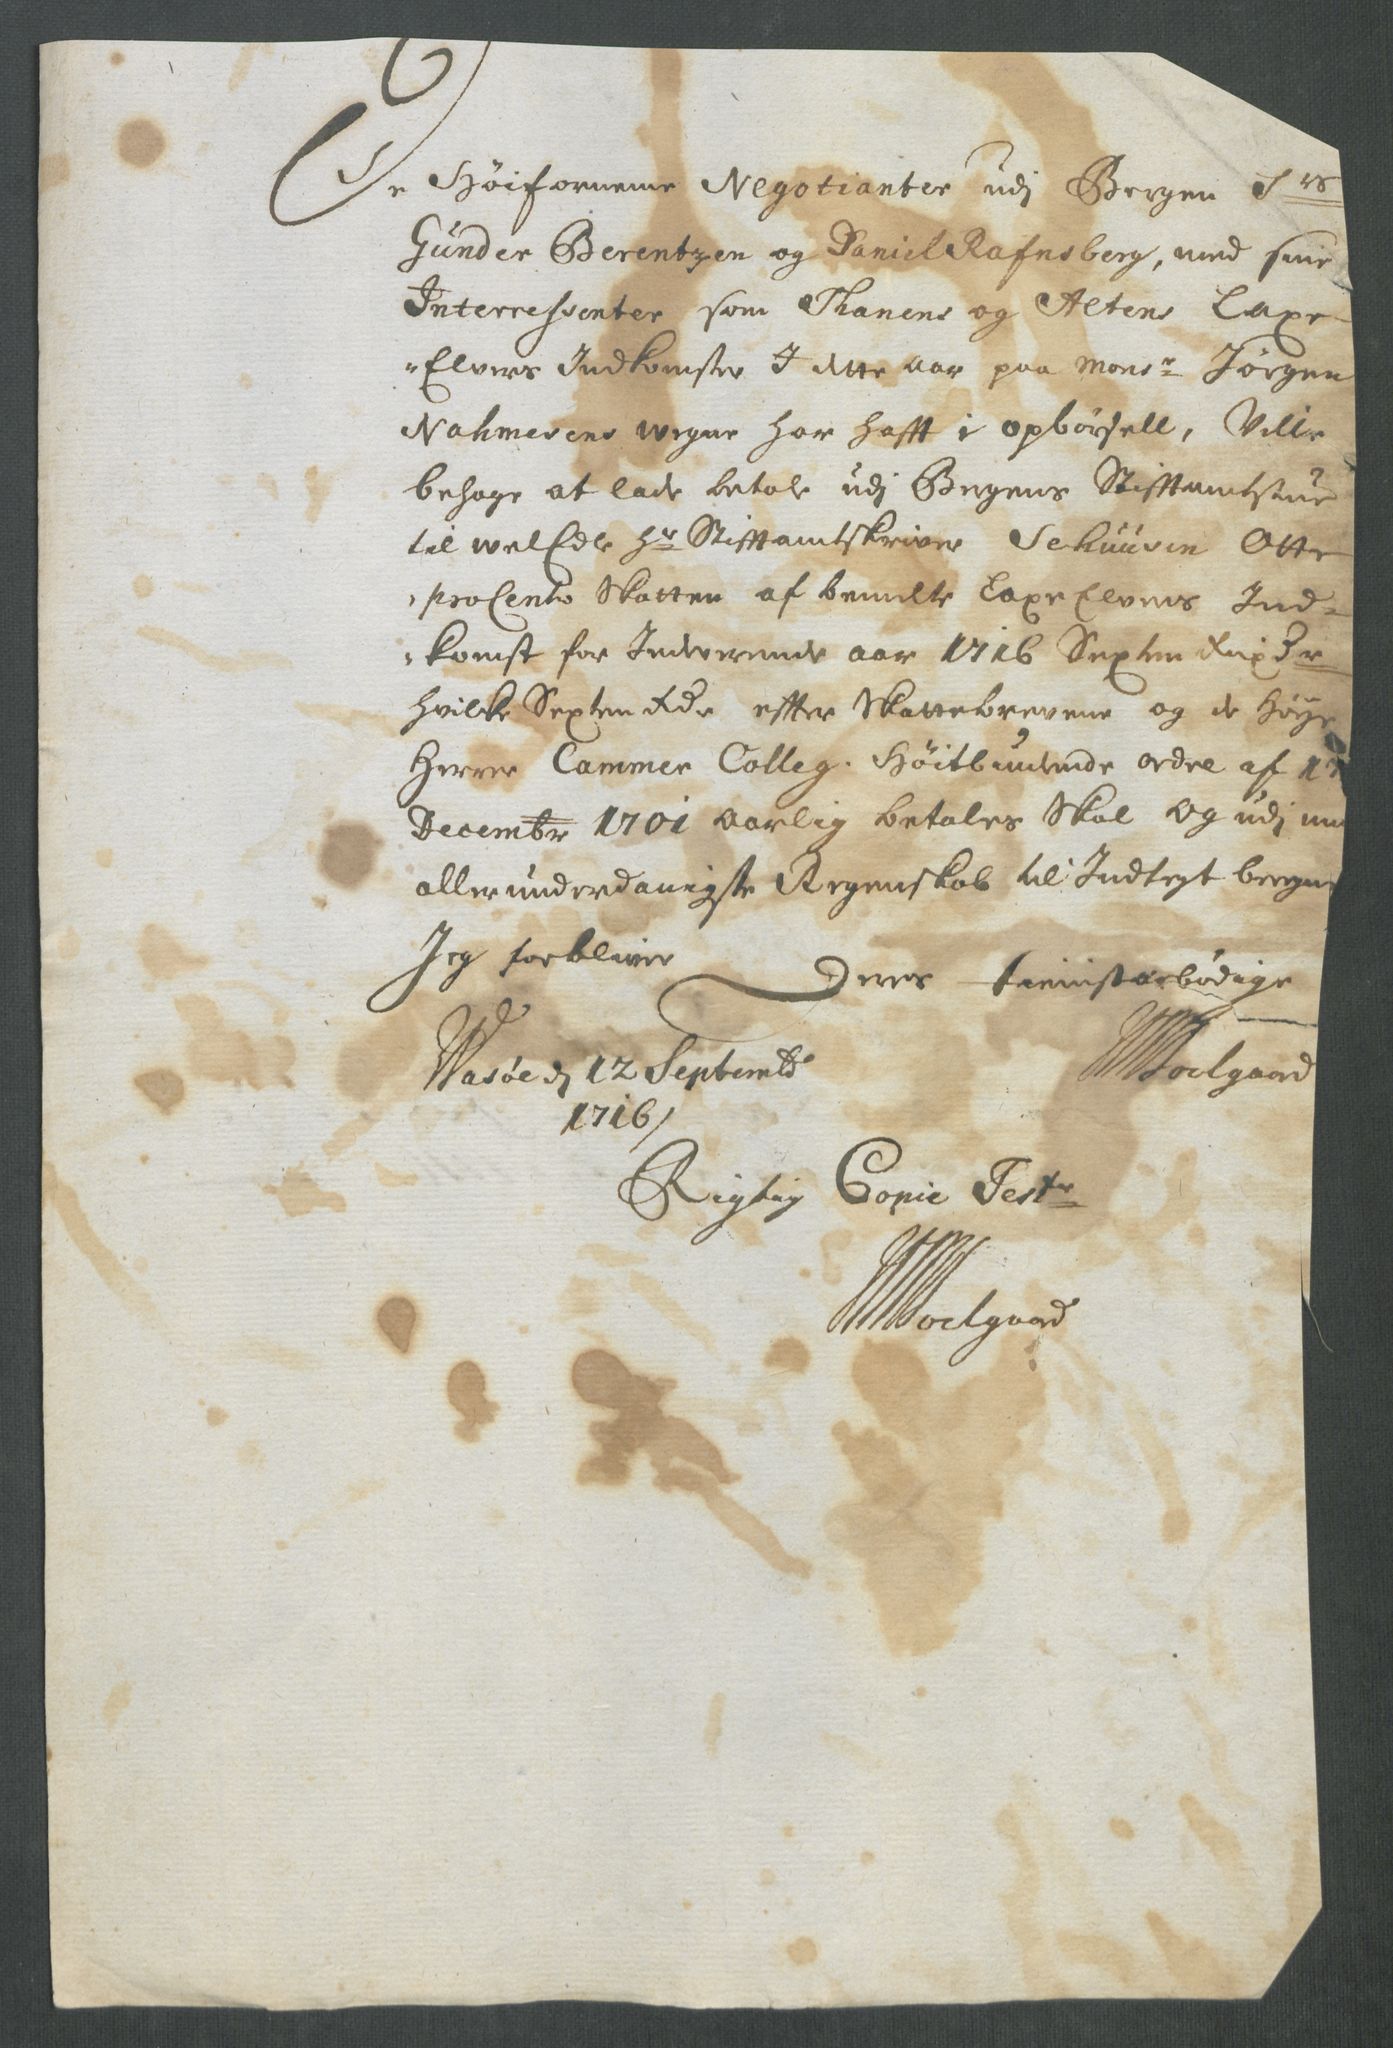 De Høifornemme Negotianter udj Bergen Srs
Gunder Berentzen og Daniel Rafnsberg, med sine
Interressenter som Thanens og Altens Laxe
Elvers Indkomster I dette aar paa Monsr Jørgen
Nahmesens wegne har hafft i opbørsell, Ville
behage at lade betale udj Bergens Stifftamtstue
til welEdle Hr Stifftamtskriver Schuusen Otte
proCento Skatten af bemelte Laxe Elvers Ind-
komst for Indeverende aar 1716 Sexten
hvilke Sexten rdr effter Skattebrevene og de Høye
Herrer Cammer Colleg. Høitbiudende ordre af
Decembr 1701 aarlig betales Skal og udj
allerunderdanigste Regenskab til Indtegt
Jeg forbliver Deres tienistærbødige
Wasøe dj 12 Septembr Moelgaard
1716/
Rigtig Copie Test
Moelgaard